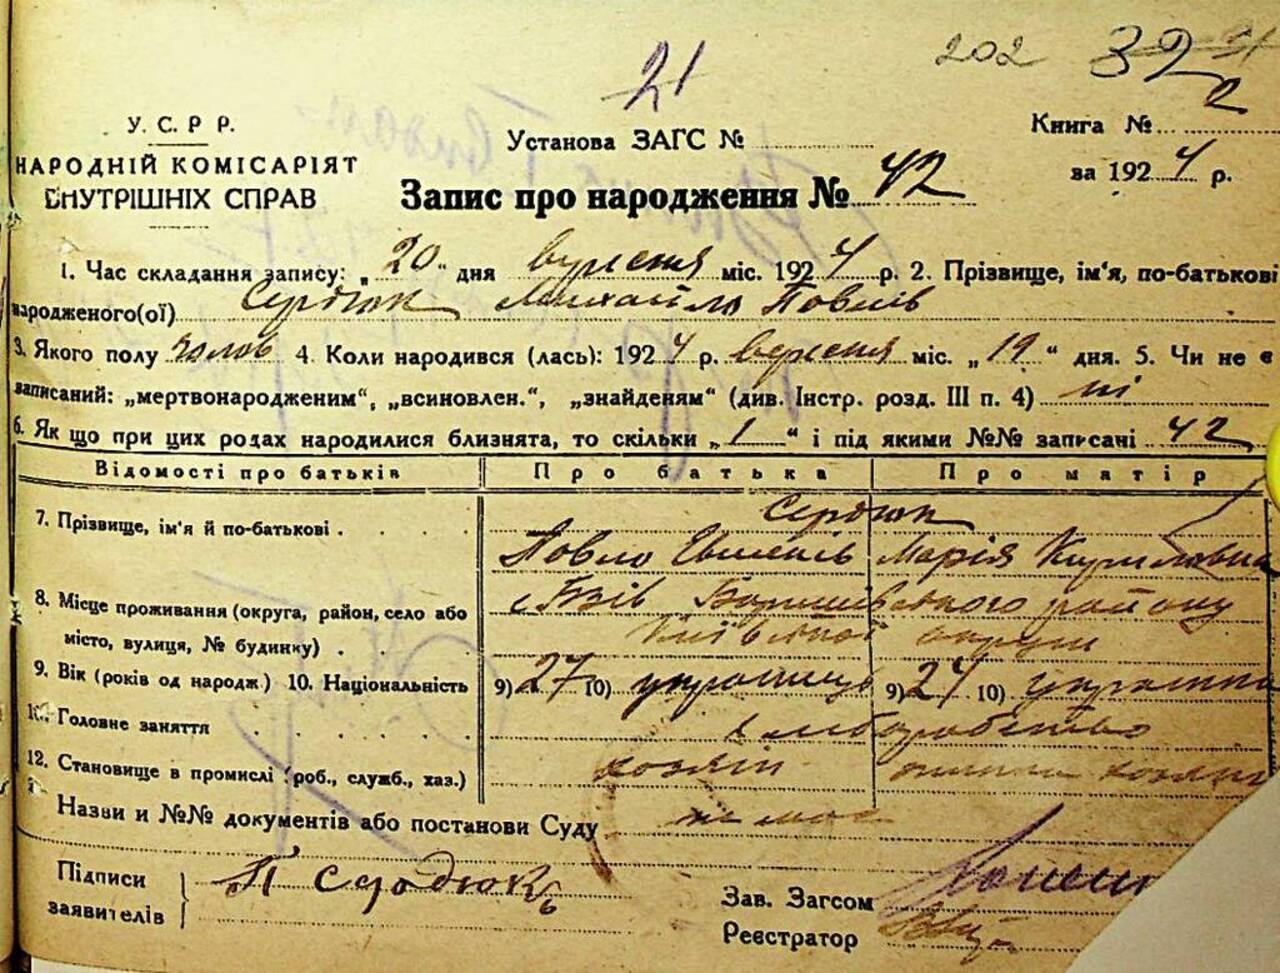 21
202 32
2
У. С. Р Р.
НАРОДНІЙ КОМІСАРІЯТ
ВНУТРІШНІХ СПРАВ
Установа ЗАГС №
Книга №
за 1924 р.
Запис про народження № 42
1. Час складання запису: „20" дня вересня міс. 1924 р. 2. Прізвище, ім'я, по-батькові
народженого(ої) Сердюк Михайло Повлів
3. Якого полу чолов 4. Коли народився (лась): 1924 р. вересня міс. „19" дня. 5. Чи не є
записаний: „мертвонародженим", „всиновлен.", „знайденям" (див. Інстр. розд. III п. 4) ні
6. Як що при цих родах народилися близнята, то скільки „1" і під якими №№ записані 42
Відомості про батьків Про батька Про матір
7. Прізвище, ім'я й по-батькові Сердюк
Повло Марія Кириловна
8. Місце проживання (округа, район, село або
місто, вулиця, № будинку) району
Київської округи
9. Вік (років од народж.) 10. Національність 9) 27 10) украинець 9) 24 10) украинка
11. Головне заняття хлиборобство
12. Становище в промислі (роб., служб., хаз.) хозяїн
Назви и №№ документів або постанови Суду не має
Підписи
заявителів П Сердюкъ
Зав. Загсом
Реєстратор